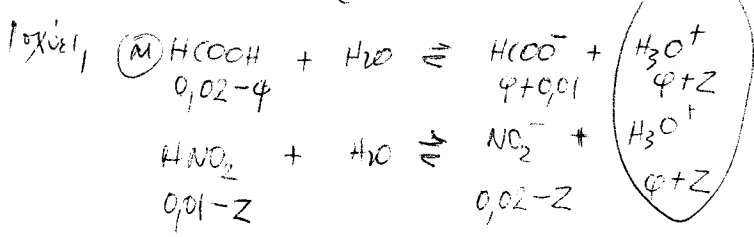 Ισχύει, (M) HCOOH + H₂O ⇌ HCOO⁻ + H₃O⁺
0,02-φ φ+0,01 φ+z
HNO₂ + H₂O ⇌ NO₂⁻ + H₃O⁺
0,01-z 0,02-z φ+z